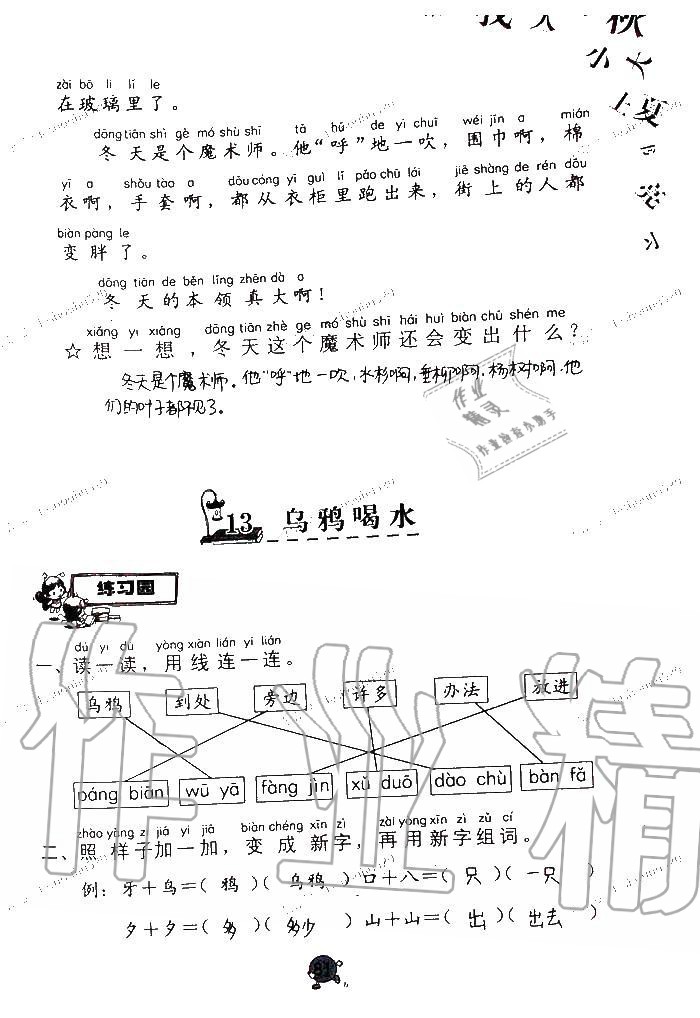 zài bō li lǐ le
在玻璃里了。
dōng tiān shì gè mó shù shī tā hū de yì chuī wéi jīn a mián
冬天是个魔术师。他“呼”地一吹，围巾啊，棉
yī a shǒu tào a dōu cóng yī guì lǐ pǎo chū lái jiē shàng de rén dōu
衣啊，手套啊，都从衣柜里跑出来，街上的人都
biàn pàng le
变胖了。
dōng tiān de běn lǐng zhēn dà a
冬天的本领真大啊！
xiǎng yi xiǎng dōng tiān zhè ge mó shù shī hái huì biàn chū shén me
☆想一想，冬天这个魔术师还会变出什么？
冬天是个魔术师。他“呼”地一吹，水杉啊，垂柳啊，杨树啊，他
们的叶子都不见了。
作业
精灵
作业检查小助手
13 乌鸦喝水
练习园
dú yi dú yòng xiàn lián yi lián
一、读一读，用线连一连。
乌鸦 到处 旁边 许多 办法 放进
páng biān wū yā fàng jìn xǔ duō dào chù bàn fǎ
zhào yàng zi jiā yi jiā biàn chéng xīn zì zài yòng xīn zì zǔ cí
二、照样子加一加，变成新字，再用新字组词。
例：牙＋鸟＝（鸦）（乌鸦） 口＋八＝（只）（一只）
夕＋夕＝（多）（多少） 山＋山＝（出）（出去）
81
作业精